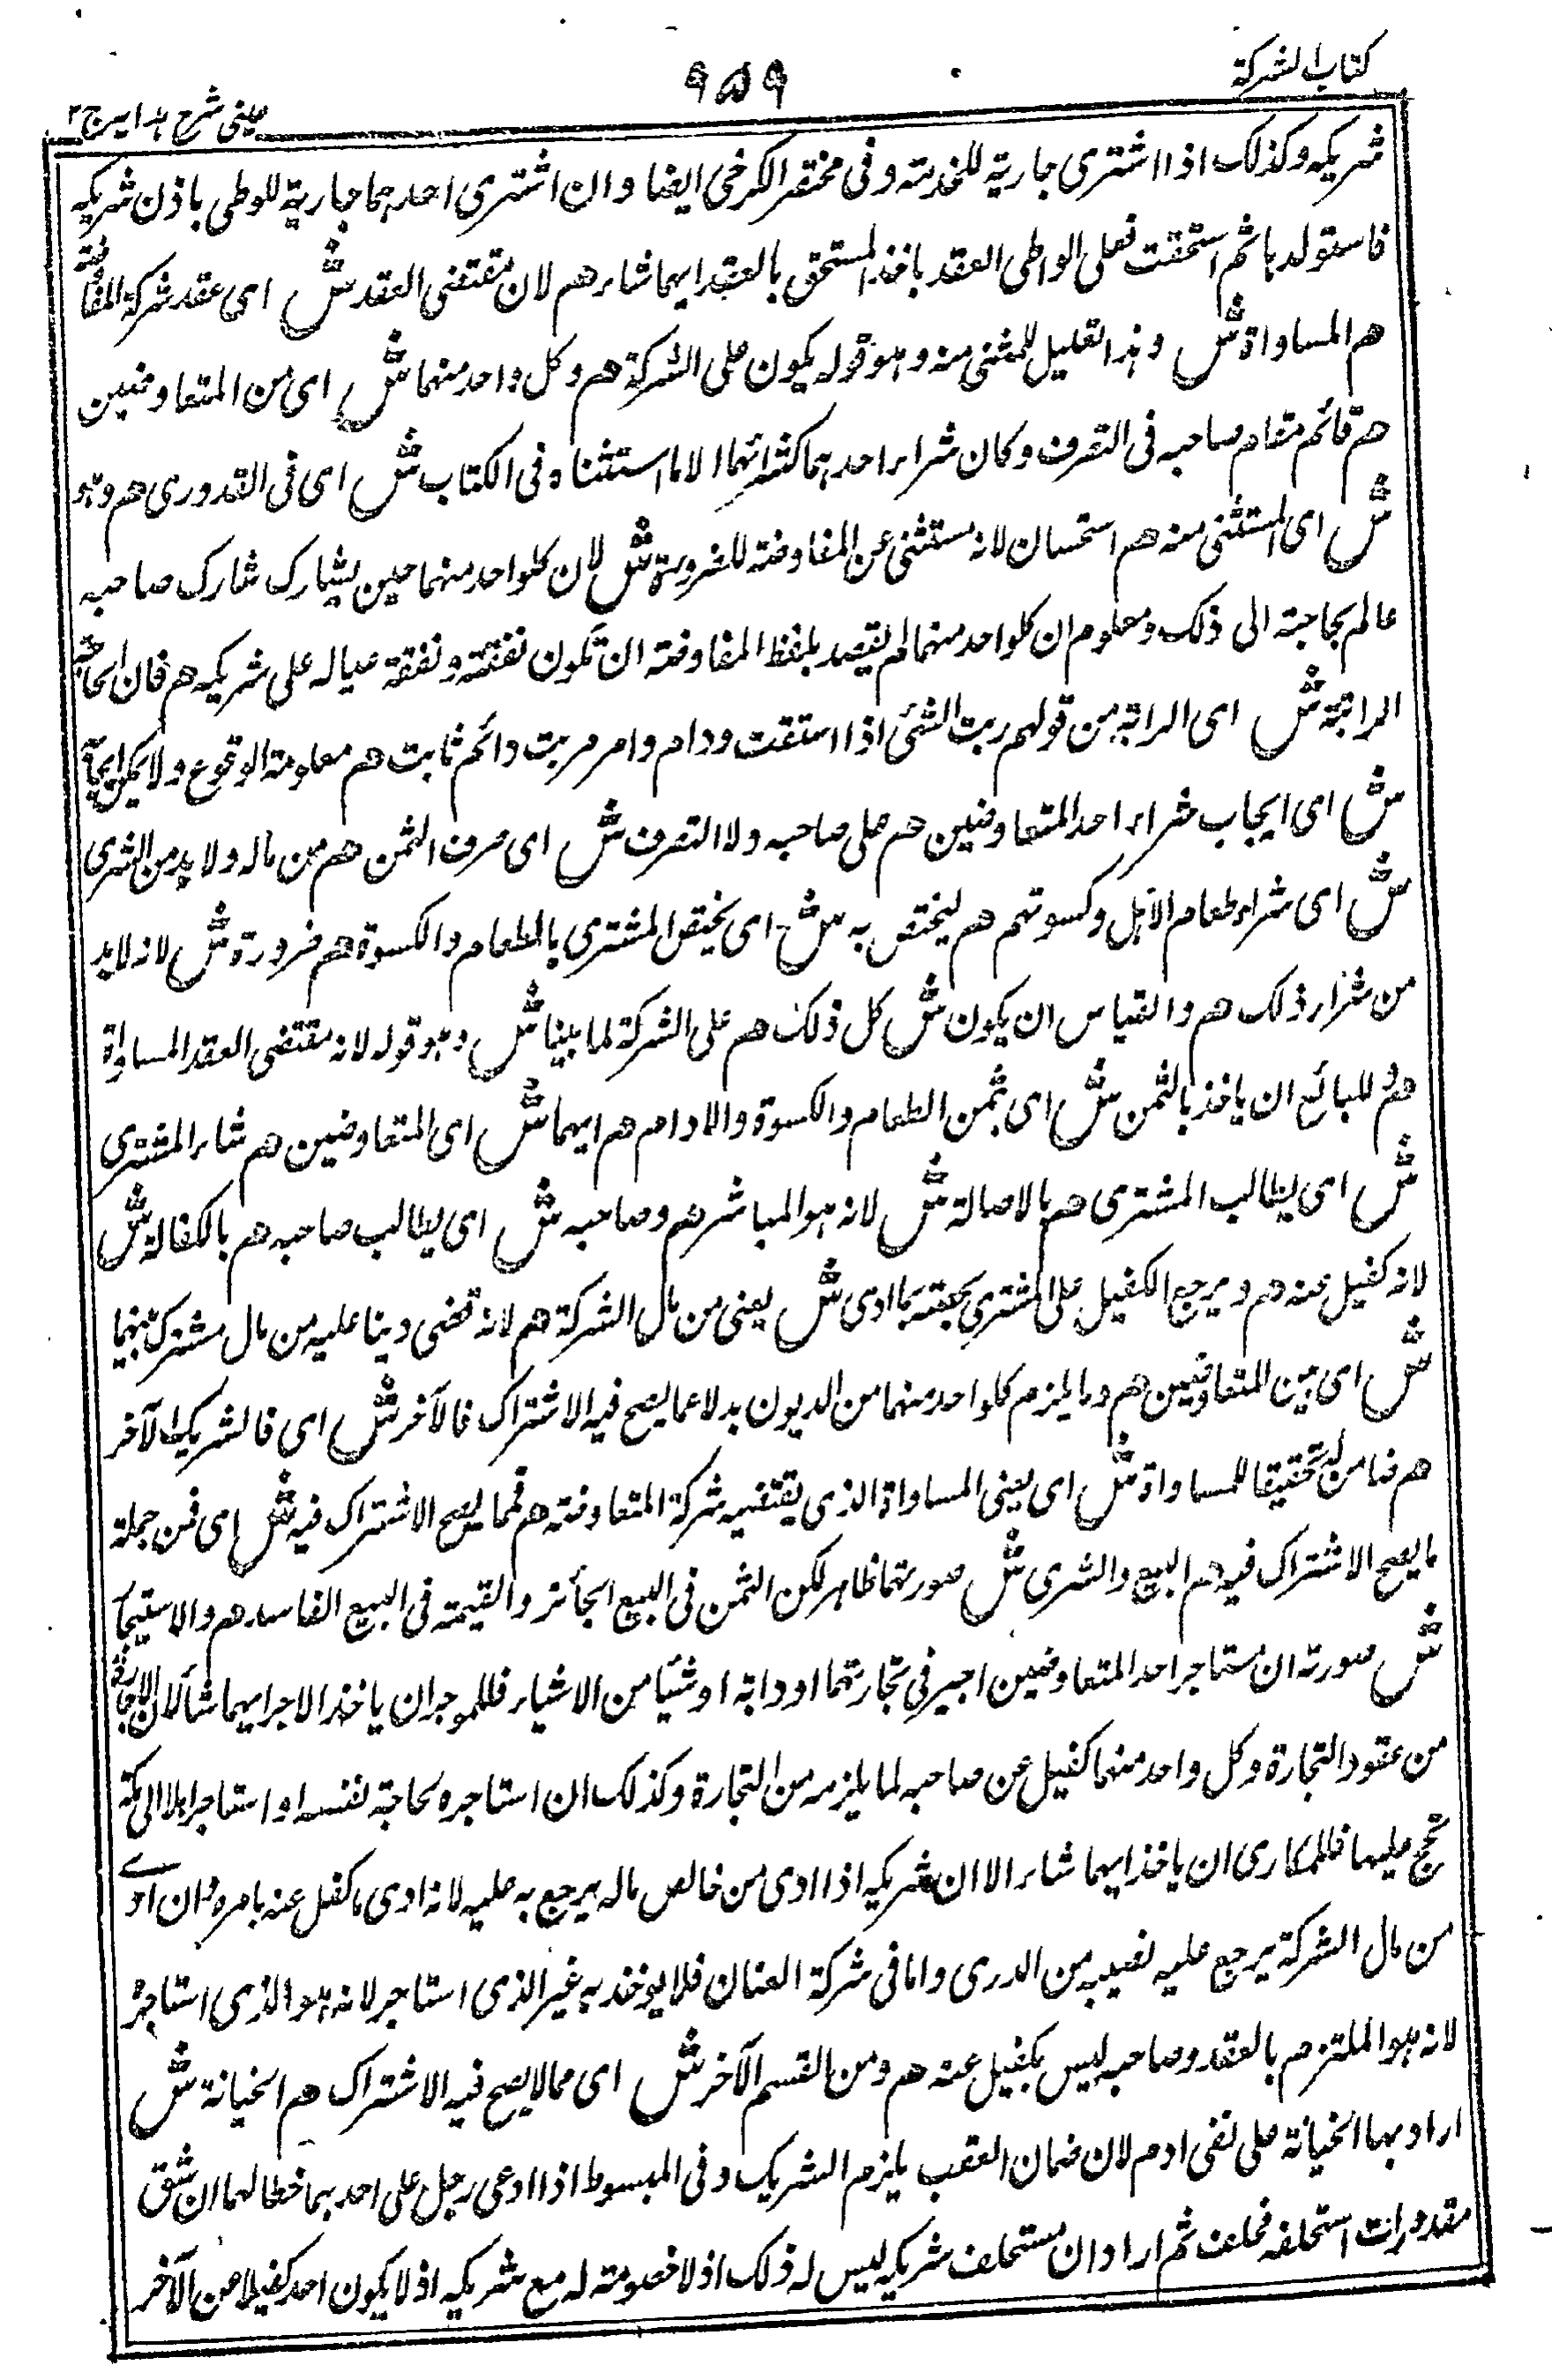 كتاب الشركة
٩٥٩
عینی شرح ہدایہ ج ٢
شریکہ وکذلک اذا اشتری جاریة للخدمتہ وفی مختصر الکرخی ایضا وان اشتری احدہما جاریة للوطی باذن شریکہ
فاستولدہا ثم استحقت فعلی الواطی العقد یاخذ المستحق بالعقد ایہما شاء ھم لان مقتضی العقد ش ای عقد شرکة المفاوضة
ھم المساواة ش وہذا التعلیل للمثنی منہ وہو قولہ یکون علی الشرکة ھم وکل واحد منہما ش ای من المتفاوضین
ھم قائم مقام صاحبہ فی التصرف وکان شراء احدہما کشرائہما الا ما استثناہ فی الکتاب ش ای فی القدوری ھم وہو
ش ای المستثنی منہ ھم استحسان لانہ مستثنی عن المفاوضتہ للضرورة ش لان کلواحد منہما حین یشارک شارک صاحبہ
عالم بحاجتہ الی ذلک ومعلوم ان کلواحد منہما لم یقصد بلفظ المفاوضتہ ان تکون نفقتہ ونفقة عیالہ علی شریکہ ھم فان الحاجة
الراتبة ش ای الراتبة من قولہم ربت الشئی اذا استقت ودام وامر مربت دائم ثابت ھم معلومة الوقوع ولا یمکن ایجابہ
ش ای ایجاب شراء احد المتفاوضین ھم علی صاحبہ ولا التصرف ش ای صرف الثمن ھم من مالہ ولا بد من الشری
ش ای شراء طعام الاہل وکسوتہم ھم لیختص بہ ش ای یختص المشتری بالطعام والکسوة ھم ضرورة ش لانہ لابد
من شراء ذلک ھم والقیاس ان یکون ش کل ذلک ھم علی الشرکة لما بینا ش وہو قولہ لانہ مقتضی العقد المساواة
ھم وللبائع ان یاخذ بالثمن ش ای بثمن الطعام والکسوة والادام ھم ایہما ش ای المتفاوضین ھم شاء المشتری
ش ای یطالب المشتری ھم بالاصالة ش لانہ ہو المباشر ھم وصاحبہ ش ای یطالب صاحبہ ھم بالکفالة ش
لانہ کفیل عنہ ھم ویرجع الکفیل علی المشتری بحصتہ مما ادی ش یعنی من مال الشرکة ھم لانہ قضی دینا علیہ من مال مشترک بینہما
ش ای بین المتفاوضین ھم وما یلزم کلواحد منہما من الدیون بدلا عما یصح فیہ الاشتراک فالآخر ش ای فالشریک الآخر
ھم ضامن لہ تحقیقا للمساواة ش ای یعنی المساواة الذی یقتضیہ شرکة المتفاوضتہ ھم فمما یصح الاشتراک فیہ ش ای فمن جملة
ما یصح الاشتراک فیہ ھم البیع والشری ش صورتہما ظاہر لکن الثمن فی البیع الجائز والقیمتہ فی البیع الفاسد ھم والاستیجار
ش صورتہ ان مستاجر احد المتفاوضین اجیر فی تجارتہما او دابة او شیئا من الاشیاء فللموجر ان یاخذ الاجر ایہما شاء لان الاجارة
من عقود التجارة وکل واحد منہما کفیل عن صاحبہ لما یلزمہ من التجارة وکذلک ان استاجرہ لحاجة نفسہ او استاجر ابلا الی مکة
تحج علیہا فللمکاری ان یاخذ ایہما شاء الا ان شریکہ اذا ادی من خالص مالہ یرجع بہ علیہ لانہ ادی ما کفل عنہ بامرہ وان ادی
من مال الشرکة یرجع علیہ نصیبہ من الدری واما فی شرکة العنان فلا یوخذ بہ غیر الذی استاجر لانہ ہو الذی استاجرہ
لانہ ہو الملتزم بالعقد وصاحبہ لیس بکفیل عنہ ھم ومن القسم الآخر ش ای مما لا یصح فیہ الاشتراک ھم الخیانة ش
اراد بہا الخیانة علی نفی ادم لان ضمان العقب یلزم الشریک وفی المبسوط اذا ادعی رجل علی احدہما خطا لہما ان شق
مقدورات استحلفہ فحلف ثم اراد ان مستحلف شریکہ لیس لہ ذلک اذ لا خصومتہ لہ مع شریکہ اذ لا یکون احد کفیلا عن الآخر